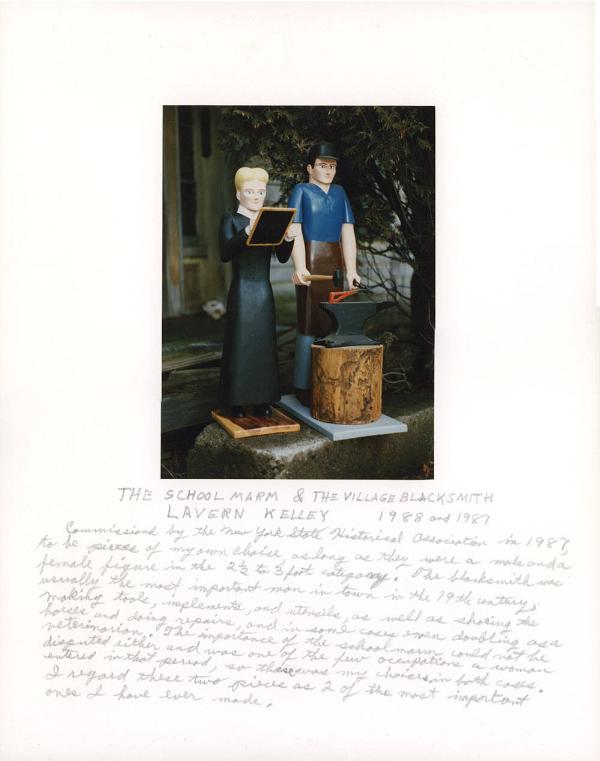 THE SCHOOL MARM & THE VILLAGE BLACKSMITH
LAVERN KELLEY 1988 and 1987
Commissiond by the New York State Historical Association in 1987,
to be pieces of my own choice, as long as they were a male and a
female figure in the 2½ to 3 foot category. The blacksmith was
usually the most important man in town in the 19th century,
making tools, implements, and utensils, as well as shoeing the
horses and doing repairs, and in some cases even doubling as a
veterinarian. The importance of the school marm could not be
disputed either and was one of the few occupations a woman
entered in that period, so these was my choices in both cases.
I regard these two pieces as 2 of the most important
ones I have ever made.